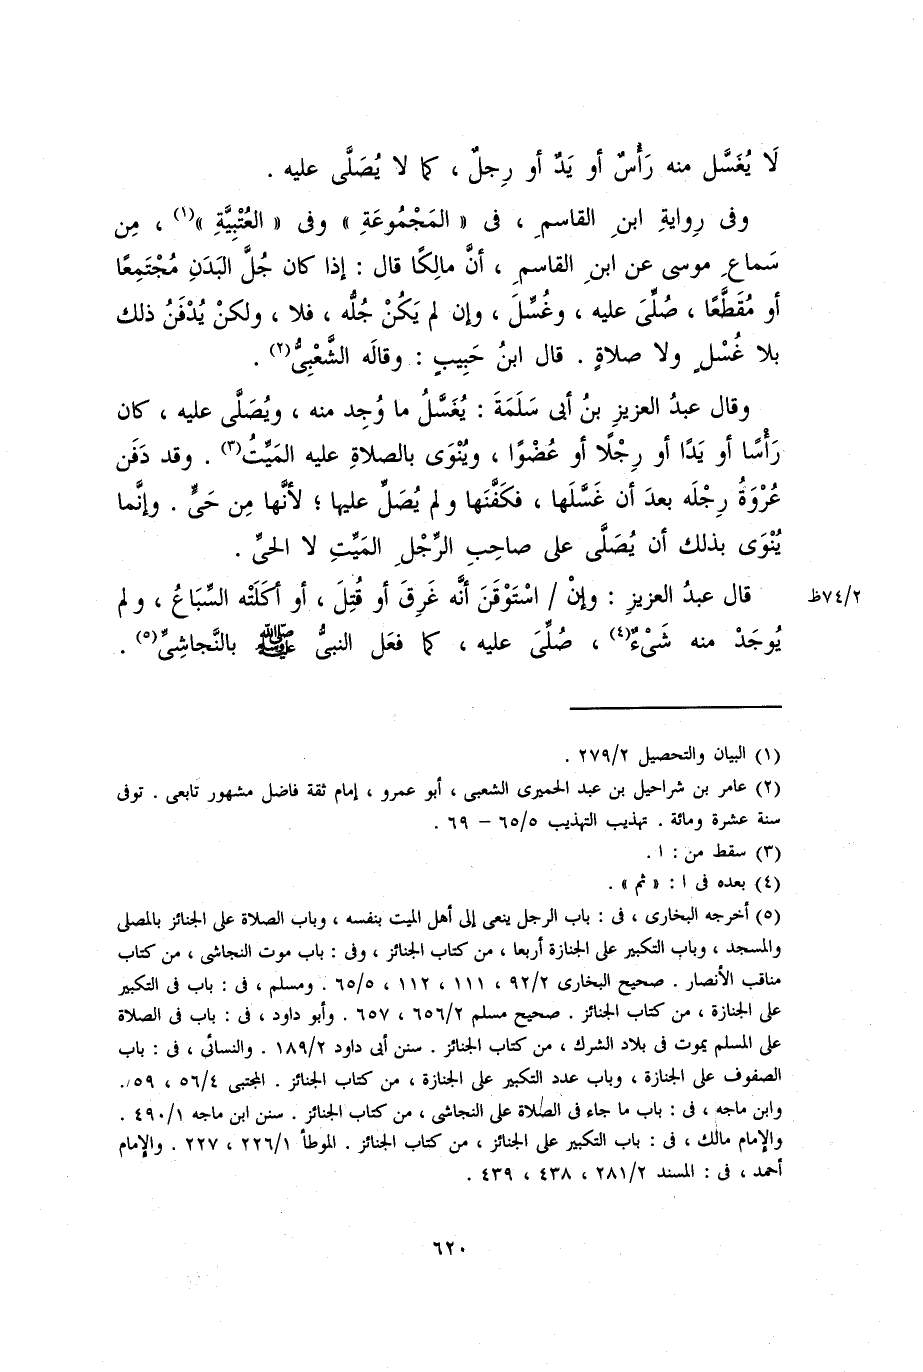 لَا يُغَسَّل منه رَأْسٌ أو يَدٌ أو رِجلٌ ، كما لا يُصَلَّى عليه .
وفى رِوايةِ ابنِ القاسمِ ، فى « المَجْمُوعَةِ » وفى « العُتْبِيَّةِ »(١) ، مِن
سَماعِ موسى عن ابنِ القاسمِ ، أنَّ مالِكًا قال : إذا كان جُلَّ البَدَنِ مُجْتَمِعًا
أو مُقَطَّعًا ، صُلِّىَ عليه ، وغُسِّلَ ، وإن لم يَكُنْ جُلُّه ، فلا ، ولكنْ يُدْفَنُ ذلك
بلا غُسْلٍ ولا صلاةٍ . قال ابنُ حَبِيبٍ : وقالَه الشَّعْبِىُّ(٢) .
وقال عبدُ العزيزِ بنُ أبى سَلَمَةَ : يُغَسَّلُ ما وُجِد منه ، ويُصَلَّى عليه ، كان
رَأْسًا أو يَدًا أو رِجْلًا أو عُضْوًا ، ويُنْوَى بالصلاةِ عليه المَيِّتُ(٣) . وقد دَفَن
عُرْوَةُ رِجْلَه بعدَ أن غَسَّلَها ، فكَفَّنَها ولم يُصَلِّ عليها ؛ لأنَّها مِن حَىٍّ . وإنَّما
يُنْوَى بذلك أن يُصَلَّى على صاحبِ الرِّجْلِ المَيِّتِ لا الحىِّ .
قال عبدُ العزيزِ : وإنْ / اسْتَوْقَنَ أنَّه غَرِقَ أو قُتِلَ ، أو أكَلَتْه السِّبَاعُ ، ولم ٧٤/٢ظ
يُوجَدْ منه شَىْءٌ(٤) ، صُلِّىَ عليه ، كما فعَل النبىُّ ﷺ بالنَّجاشِىِّ(٥) .
(١) البيان والتحصيل ٢٧٩/٢ .
(٢) عامر بن شراحيل بن عبد الحميرى الشعبى ، أبو عمرو ، إمام ثقة فاضل مشهور تابعى . توفى
سنة عشرة ومائة . تهذيب التهذيب ٦٥/٥ – ٦٩ .
(٣) سقط من : ا .
(٤) بعده فى ا : « ثم » .
(٥) أخرجه البخارى ، فى : باب الرجل ينعى إلى أهل الميت بنفسه ، وباب الصلاة على الجنائز بالمصلى
والمسجد ، وباب التكبير على الجنازة أربعا ، من كتاب الجنائز ، وفى : باب موت النجاشى ، من كتاب
مناقب الأنصار . صحيح البخارى ٩٢/٢ ، ١١١ ، ١١٢ ، ٦٥/٥ . ومسلم ، فى : باب فى التكبير
على الجنازة ، من كتاب الجنائز . صحيح مسلم ٦٥٦/٢ ، ٦٥٧ . وأبو داود ، فى : باب فى الصلاة
على المسلم يموت فى بلاد الشرك ، من كتاب الجنائز . سنن أبى داود ١٨٩/٢ . والنسائى ، فى : باب
الصفوف على الجنازة ، وباب عدد التكبير على الجنازة ، من كتاب الجنائز . المجتبى ٥٦/٤ ، ٥٩ .
وابن ماجه ، فى : باب ما جاء فى الصلاة على النجاشى ، من كتاب الجنائز . سنن ابن ماجه ٤٩٠/١ .
والإمام مالك ، فى : باب التكبير على الجنائز ، من كتاب الجنائز . الموطأ ٢٢٦/١ ، ٢٢٧ . والإمام
أحمد ، فى : المسند ٢٨١/٢ ، ٤٣٨ ، ٤٣٩ .
٦٢٠